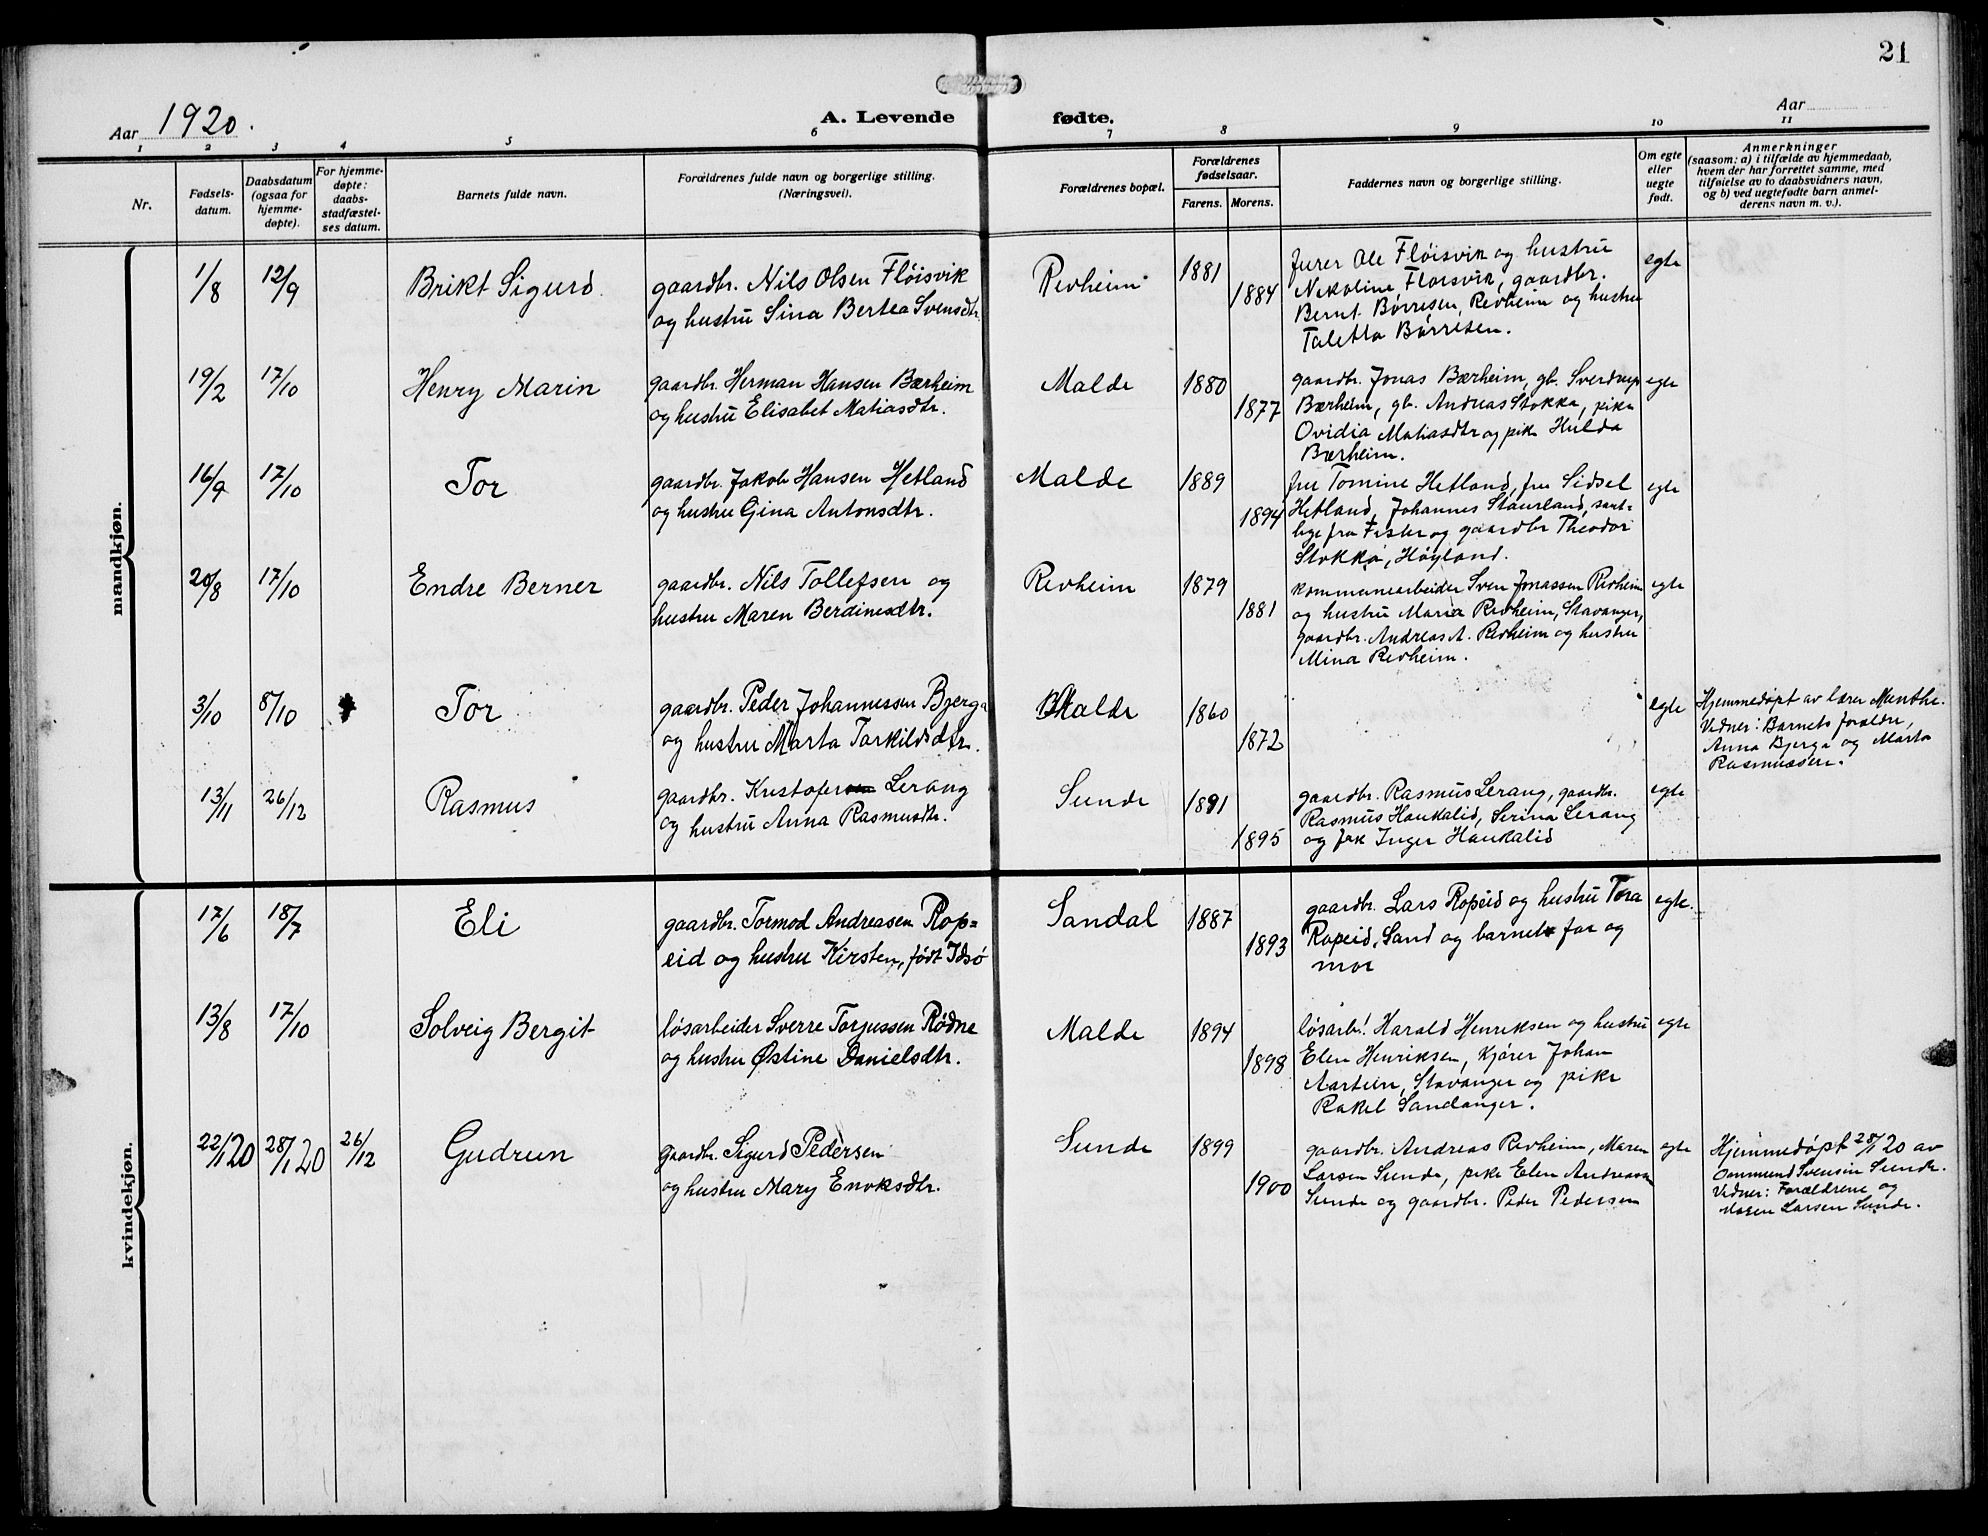 21
Aar 1920.
A. Levende fødte.
Aar
1 2 3 4 5 6 7 8 9 10 11
Nr.
Fødsels-
datum.
Daabsdatum
(ogsaa for
hjemme-
døpte).
For hjemme-
døpte:
daabs-
stadfæstel-
ses datum.
Barnets fulde navn.
Forældrenes fulde navn og borgerlige stilling.
(Næringsvei).
Forældrenes bopæl.
Forældrenes
fødselsaar.
Farens. Morens.
Faddernes navn og borgerlige stilling.
Om egte
eller
uegte
født.
Anmerkninger
(saasom: a) i tilfælde av hjemmedaab,
hvem der har forrettet samme, med
tilføielse av to daabsvidners navn,
og b) ved uegtefødte barn anmel-
derens navn m. v.).
mandkjøn.
1/8 12/9 Brikt Sigurd
gaardbr. Nils Olsen Fløisvik
og hustru Sina Bertea Svensdtr.
Revheim 1881 1884
furer Ole Fløisvik og hustru
Nikoline Fløisvik, gaardbr.
Bernt Børresen, Revheim og hustru
Taletta Børresen.
egte
19/2 17/10 Henry Marin
gaardbr. Herman Hansen Bærheim
og hustru Elisabet Matiasdtr.
Malde 1880 1877
gaardbr. Jonas Bærheim, gb. Sverdrup
Bærheim, gb. Andreas Stokka, pike
Ovidia Matiasdtr og pike Hulda
Bærheim.
egte
16/9 17/10 Tor
gaardbr. Jakob Hansen Hetland
og hustru Gina Antonsdtr.
Malde 1889 1894
fru Tomine Hetland, fru Sidsel
Hetland, Johannes Staurland, samt-
lige fra Fister og gaardbr Theodor
Stokka, Høyland.
egte
20/8 17/10 Endre Berner
gaardbr. Nils Tollefsen og
hustru Maren Berdinesdtr.
Revheim 1879 1881
kommunearbeider Sven Jonassen Revheim
og hustru Maria Revheim, Stavanger,
gaardbr. Andreas A. Revheim og hustru
Mina Revheim.
egte
3/10 8/10 Tor
gaardbr. Peder Johannessen Bjerga
og hustru Marta Torkildsdtr.
Malde 1860 1872
egte
Hjemmedøpt av lærer Munthe.
Vidner: Barnets foræld re,
Anna Bjerga og Marta
Rasmussen.
13/11 26/12 Rasmus
gaardbr. Kristofer Lerang
og hustru Anna Rasmusdtr.
Sunde 1891 1895
gaardbr. Rasmus Lerang, gaardbr.
Rasmus Haukalid, Serina Lerang
og frk Inger Haukalid
egte
kvindekjøn.
17/6 18/7 Eli
gaardbr. Tormod Andreasen Rop=
eid og hustru Kirsten, født Idsø
Sandal 1887 1893
gaardbr. Lars Ropeid og hustru Tora
Ropeid, Sand og barnets far og
mor
egte.
13/8 17/10 Solveig Bergit
løsarbeider Sverre Torjussen Rødne
og hustru Østine Danielsdtr.
Malde 1894 1898
løsarb. Harald Henriksen og hustru
Elen Henriksen, kjører Johan
Aartun, Stavanger og pike
Rakel Sandanger.
egte
22/1 20 28/1 20 26/12 Gudrun
gaardbr. Sigurd Pedersen
og hustru Mary Enoksdtr.
Sunde 1899 1900
gaardbr. Andreas Revheim, Maren
Larsen Sunde, pike Elen Andreassen
Sunde og gaardbr. Peder Pedersen
egte
Hjemmedøpt 28/1 20 av
Ommund Svensen Sunde.
Vidner: Forældrene og
Maren Larsen Sunde.